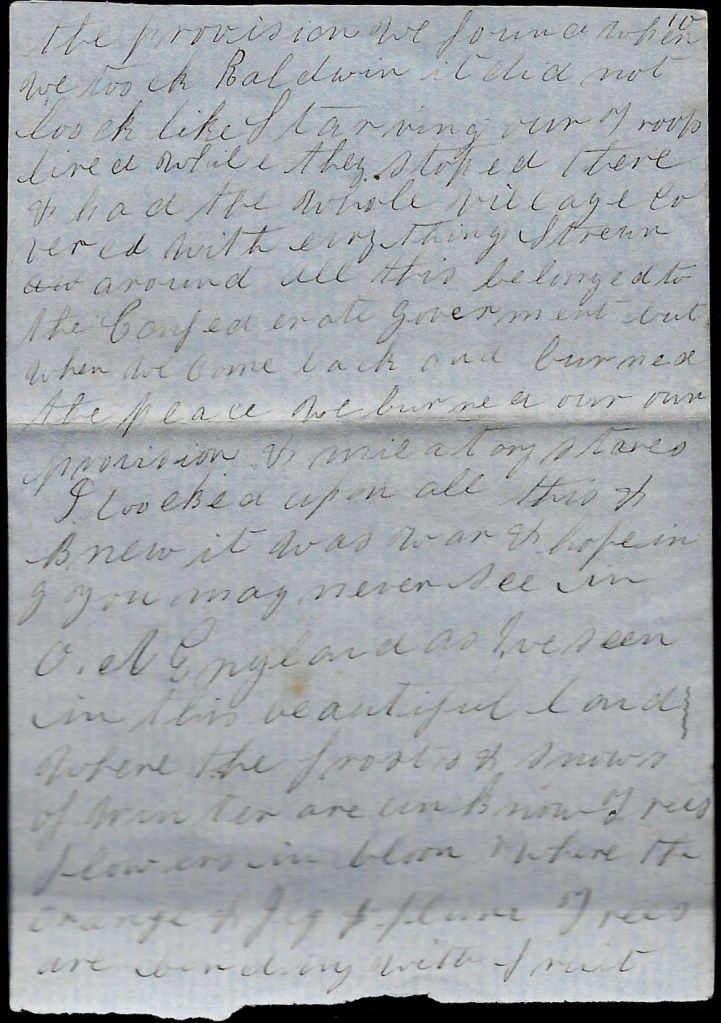 10
the provision we found when
we took Baldwin it did not
look like Starving our Troops
lived while they stoped there
& had the whole village co
vered with evrything Strewn
around all this belonged to
the Confed erate Goverment but
when we come back and burned
the place we burned our own
provision & milatary stores
I looked upon all this &
knew it was war & hopein
g you may never see in
O. N England as I've seen
in this beautiful land
where the frosts & snows
of winter are unknow Trees
flowers in bloom & where the
orange & Fig & plum Trees
are bending with fruit